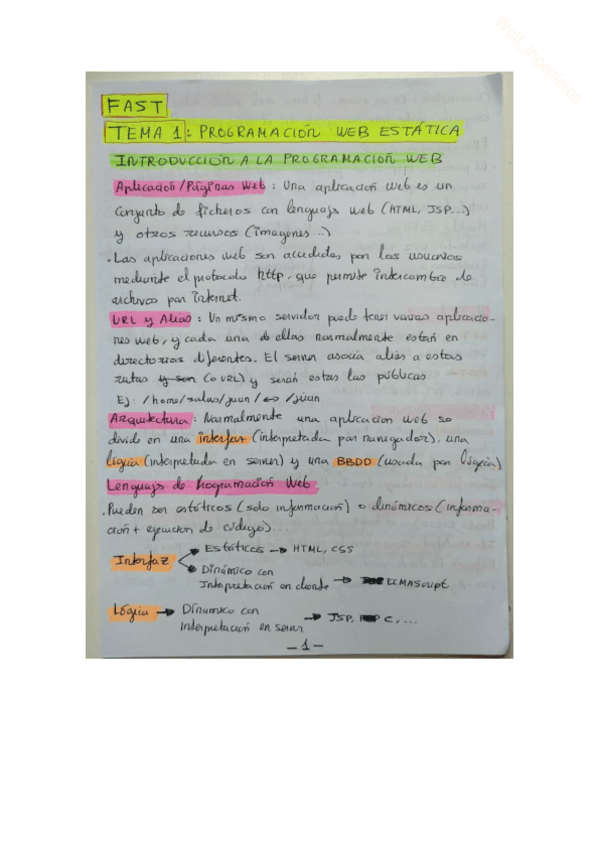 Wolf_Ingenieros
FAST
TEMA 1: PROGRAMACIÓN WEB ESTÁTICA
INTRODUCCIÓN A LA PROGRAMACIÓN WEB
Aplicación/Páginas Web: Una aplicación web es un
conjunto de ficheros con lenguajes web (HTML, JSP...)
y otros recursos (imagenes...)
· Las aplicaciones web son accedidas por los usuarios
mediante el protocolo http, que permite intercambio de
archivos por internet.
URL y Alias: Un mismo servidor puede tener varias aplicacio-
nes web, y cada una de ellas normalmente están en
directorios diferentes. El server asocia alias a estas
rutas y son (o URL) y serán estas las públicas
Ej: /home/salas/juan/ ↔ /juan
Arquitectura: Normalmente una aplicación web se
divide en una interfaz (interpretada por navegador), una
lógica (interpretada en server) y una BBDD (usada por lógica)
Lenguajes de Programación Web
· Pueden ser estáticos (solo información) o dinámicos (informa-
ción + ejecución de código)...
Interfaz
Estáticos → HTML, CSS
Dinámico con
Interpretación en cliente → ECMAScript
Lógica → Dinámico con
interpretación en server → JSP, C, ...
- 1 -